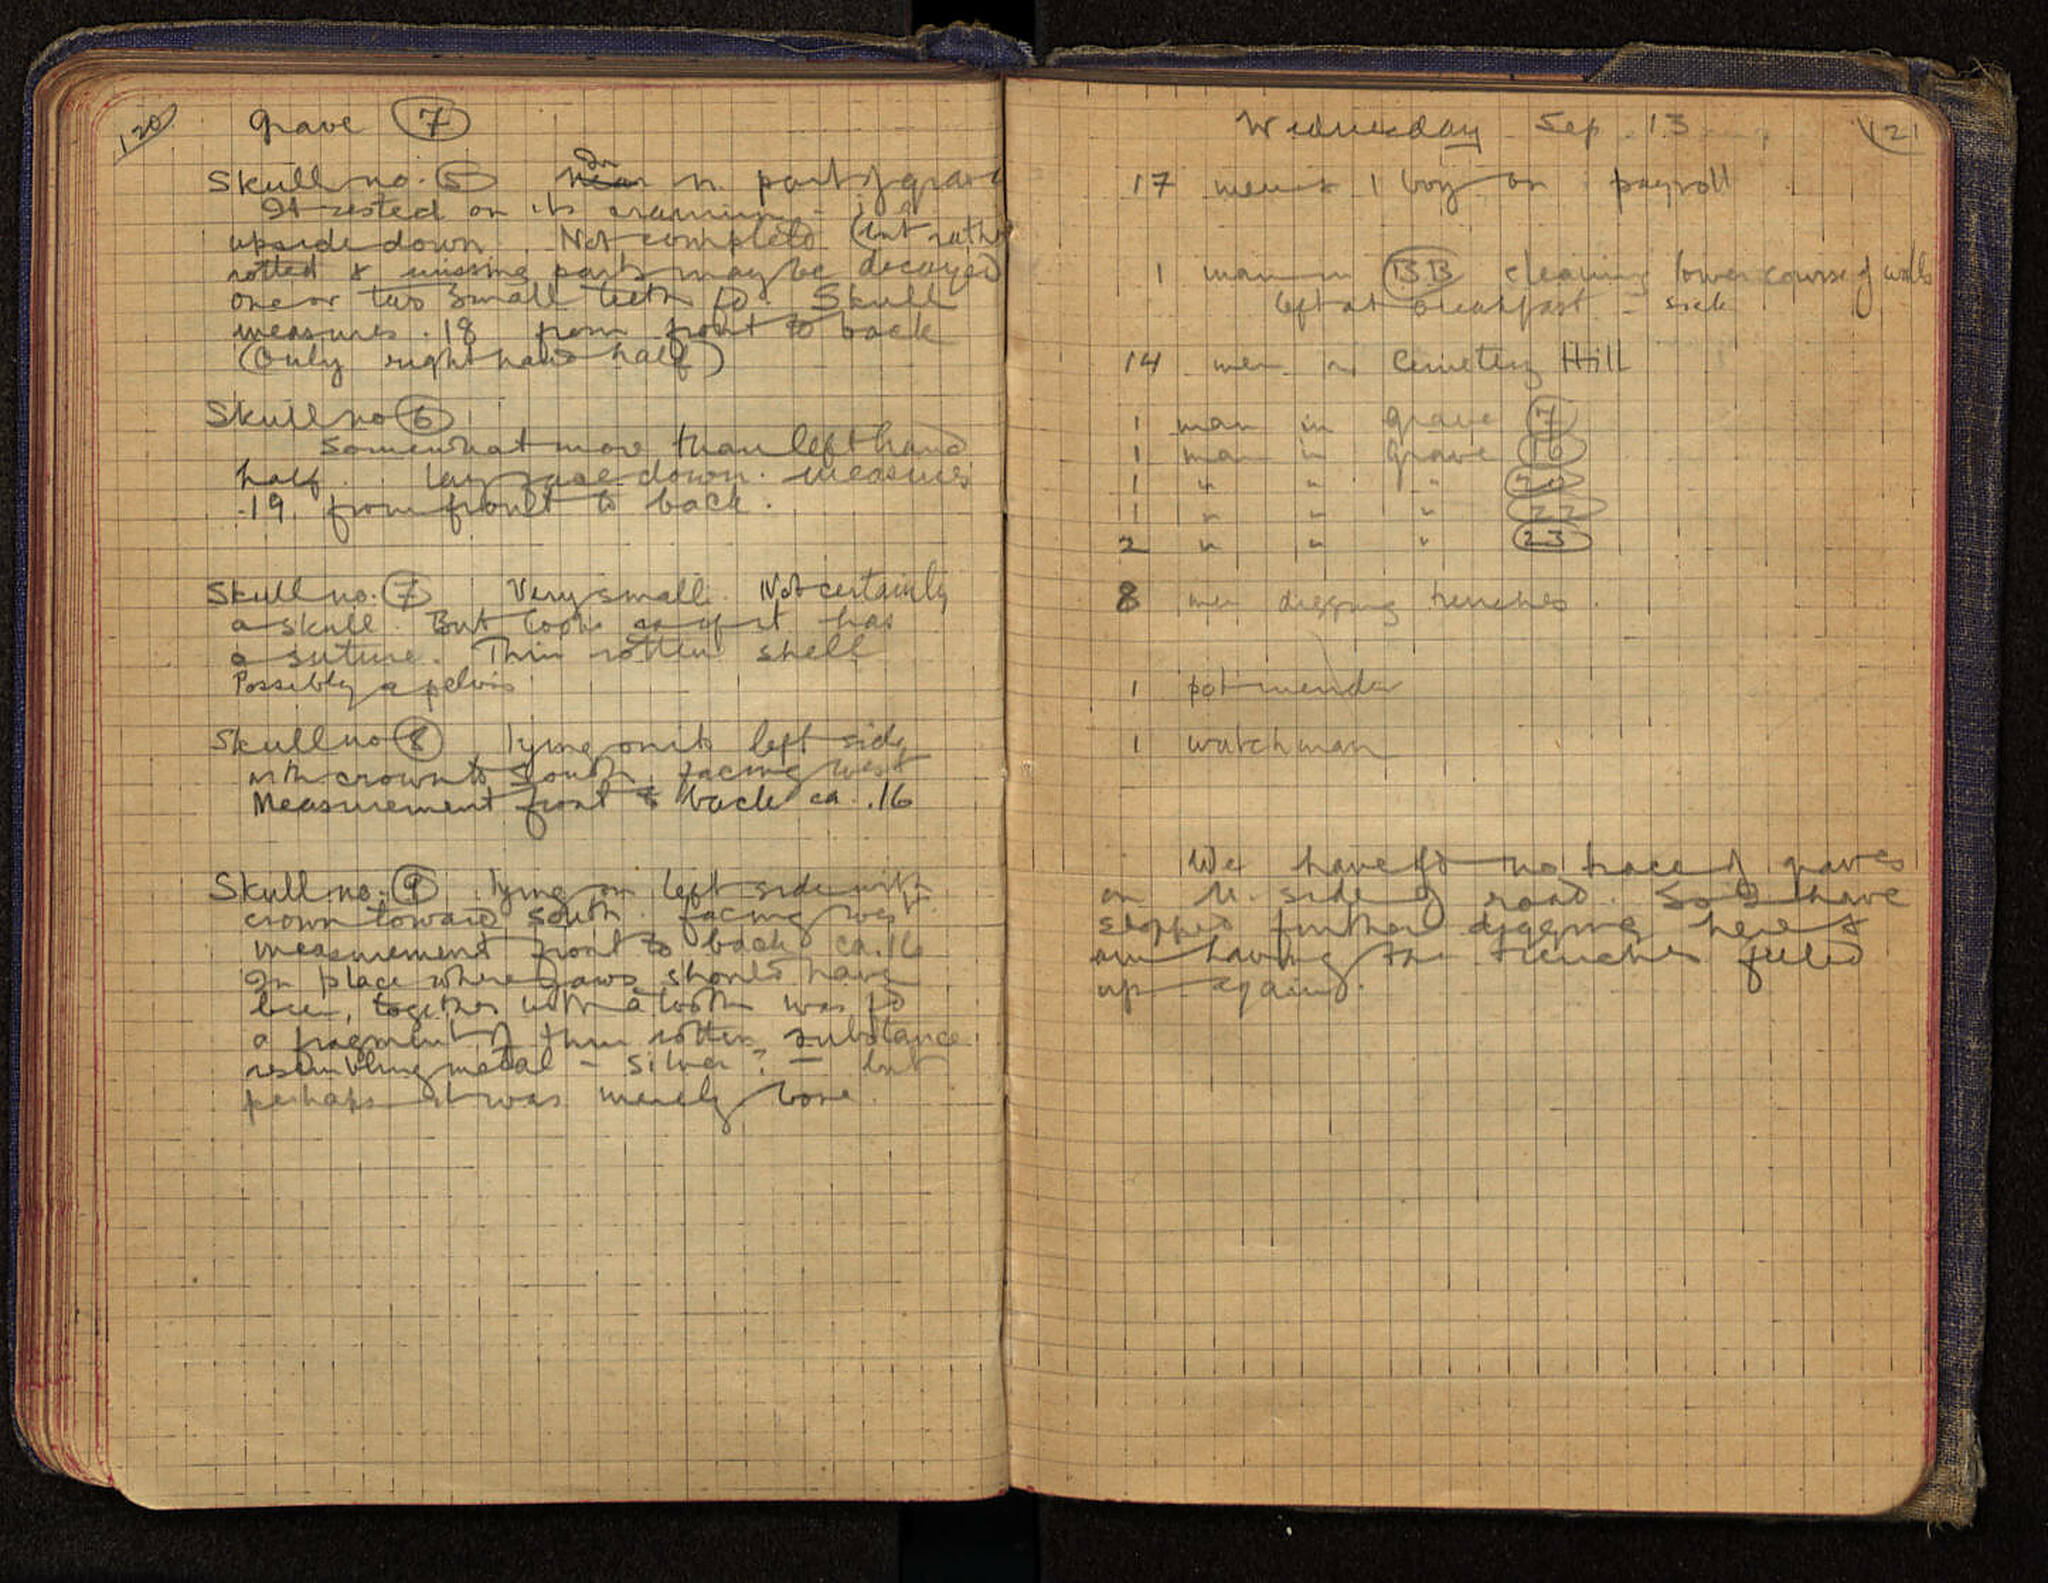 120
Grave 7
Skull no. 5 In n. part of grave
It rested on its cranium - i.e.
upside down. Not complete (but rather
rotted & missing parts may be decayed
one or two small teeth fd. Skull
measures .18 from front to back
(Only right hand half)
Skull no 6
Somewhat more than left hand
half. Lay face down. measures
.19 from front to back.
Skull no. 7 Very small. Not certainly
a skull. But looks as if it has
a suture. Thin rotten shell
Possibly a pelvis
Skull no 8 lying on its left side
with crown to South, facing west
Measurement front to back ca .16
Skull no. 9 lying on left side with
crown toward south. facing west
measurement front to back ca .16
In place where jaws should have
been, together with a tooth was fd
a fragment of thin rotten substance
resembling metal - silver? - but
perhaps it was merely bone.
121
Wednesday Sep. 13
17 men & 1 boy on payroll
1 man in BB cleaning lower course of walls
left at breakfast - sick
14 men on Cemetery Hill
1 man in Grave 7
1 man in Grave 16
1 " " " 20
1 " " " 22
2 " " " 23
8 men digging trenches.
1 pot mender
1 watchman
We have fd no trace of graves
on N. side of road. So I have
stopped further digging here &
am having the trenches filled
up again.